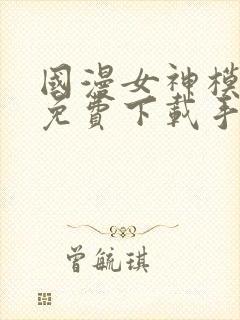 國漫女神模
免費下載手
曾毓琪